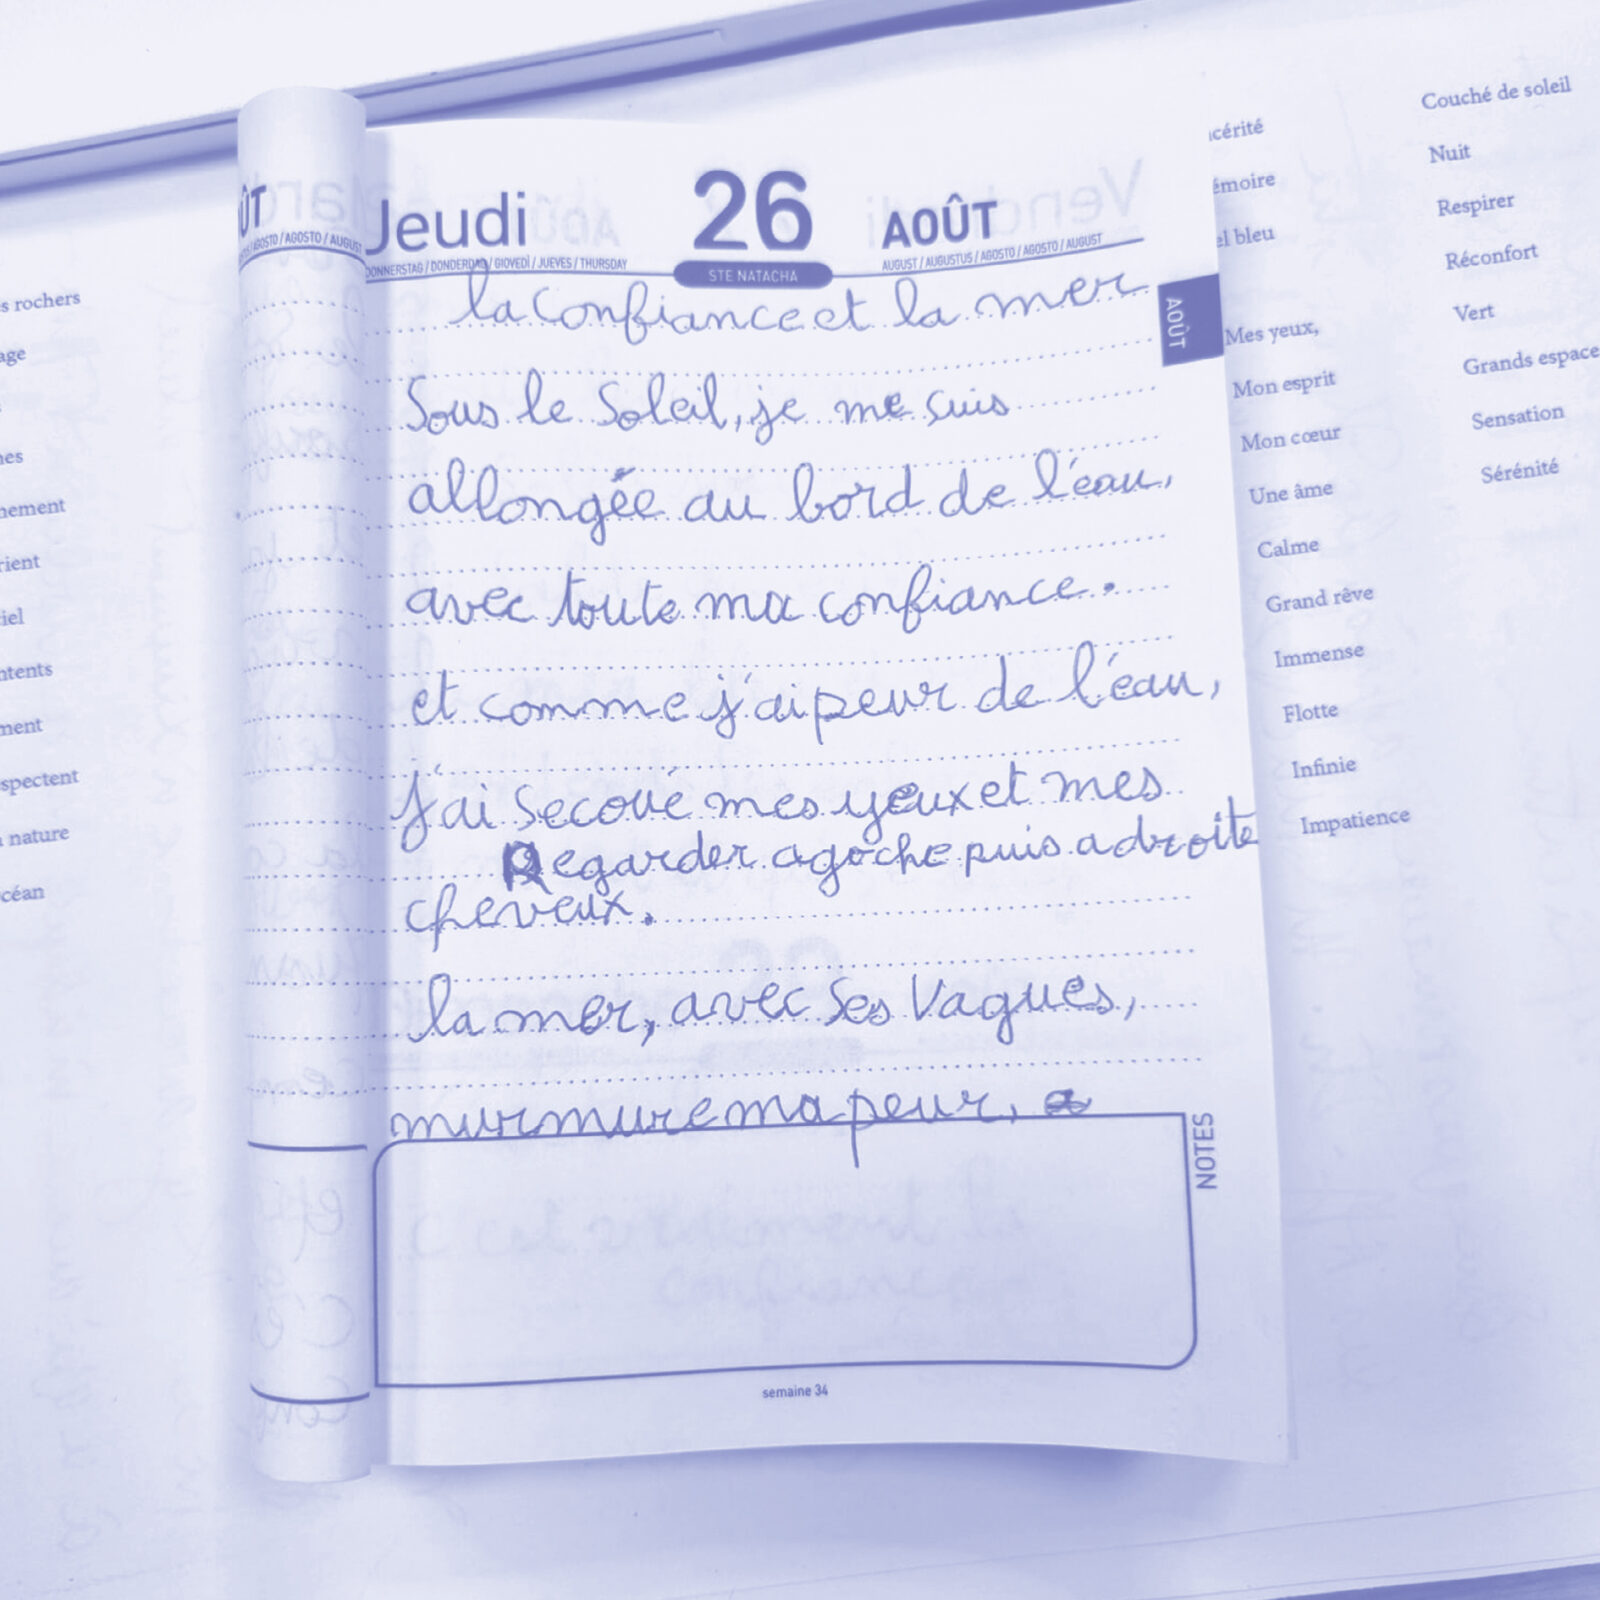 s rochers
age
nes
nement
rient
iel
ntents
ment
spectent
nature
céan
ÛT
AGOSTO / AGOSTO / AUGUST
Jeudi
26
AOÛT
DONNERSTAG / DONDERDAG / GIOVEDÌ / JUEVES / THURSDAY
STE NATACHA
AUGUST / AUGUSTUS / AGOSTO / AGOSTO / AUGUST
AOÛT
la confiance et la mer
Sous le Soleil, je me suis
allongée au bord de l'éau,
avec toute ma confiance.
et comme j'ai peur de l'éau,
j'ai Secoué mes yeux et mes
Regarder a goche puis a droite
cheveux.
la mer, avec Ses Vagues,
murmure ma peur,
NOTES
semaine 34
cérité
émoire
el bleu
Mes yeux,
Mon esprit
Mon cœur
Une âme
Calme
Grand rêve
Immense
Flotte
Infinie
Impatience
Couché de soleil
Nuit
Respirer
Réconfort
Vert
Grands espace
Sensation
Sérénité